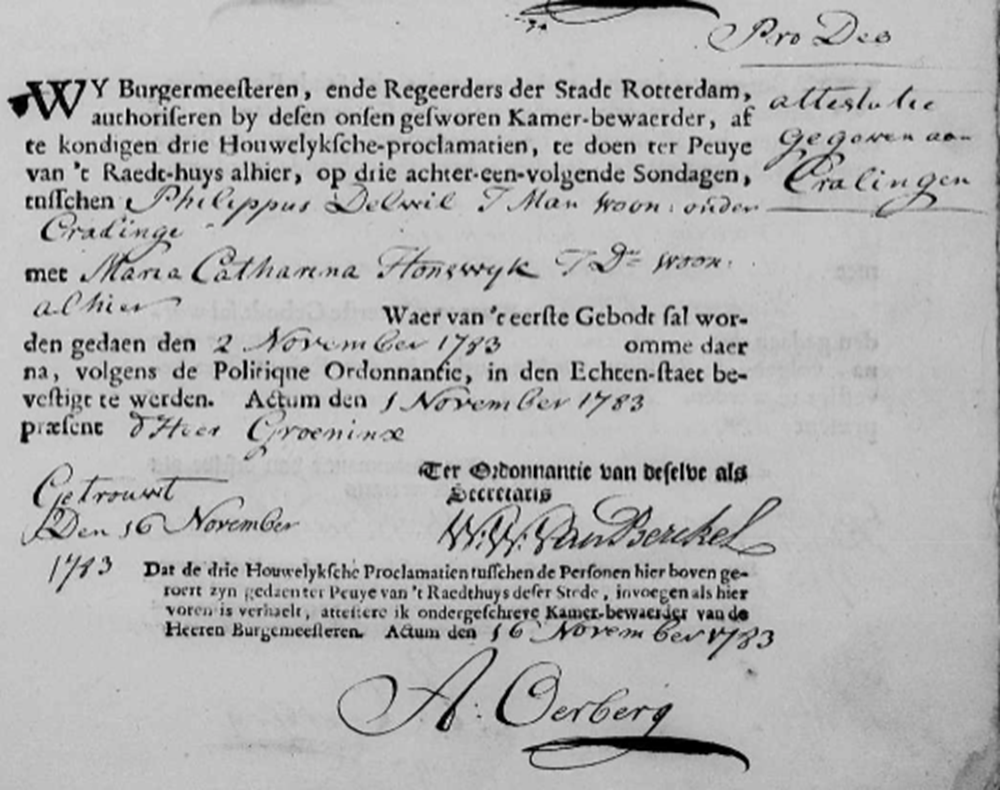 Pro Deo
WY Burgermeesteren, ende Regeerders der Stadt Rotterdam,
authoriseren by desen onsen gesworen Kamer-bewaerder, af
te kondigen drie Houwelyksche-proclamatien, te doen ter Peuye
van 't Raedt-huys alhier, op drie achter-een-volgende Sondagen,
tusschen Philippus Delwil J Man woon: onder
Cralinge
attestatie
gegeven aen
Cralingen
met Maria Catharina Honswyk J Dr woon:
alhier
Waer van 't eerste Gebodt sal wor-
den gedaen den 2 November 1783 omme daer
na, volgens de Politique Ordonnantie, in den Echten-staet be-
vestigt te werden. Actum den 1 November 1783
præsent d'Heer Groeninx
Ter Ordonnantie van deselve als
Secretaris
W. V. Van Berckel
Getrouwt
Den 16 November
1783
Dat de drie Houwelyksche Proclamatien tusschen de Personen hier boven ge-
roert zyn gedaen ter Peuye van 't Raedthuys deser Stede, invoegen als hier
voren is verhaelt, attestere ik ondergeschreve Kamer-bewaerder van de
Heeren Burgemeesteren. Actum den 16 November 1783
A. Oerberg